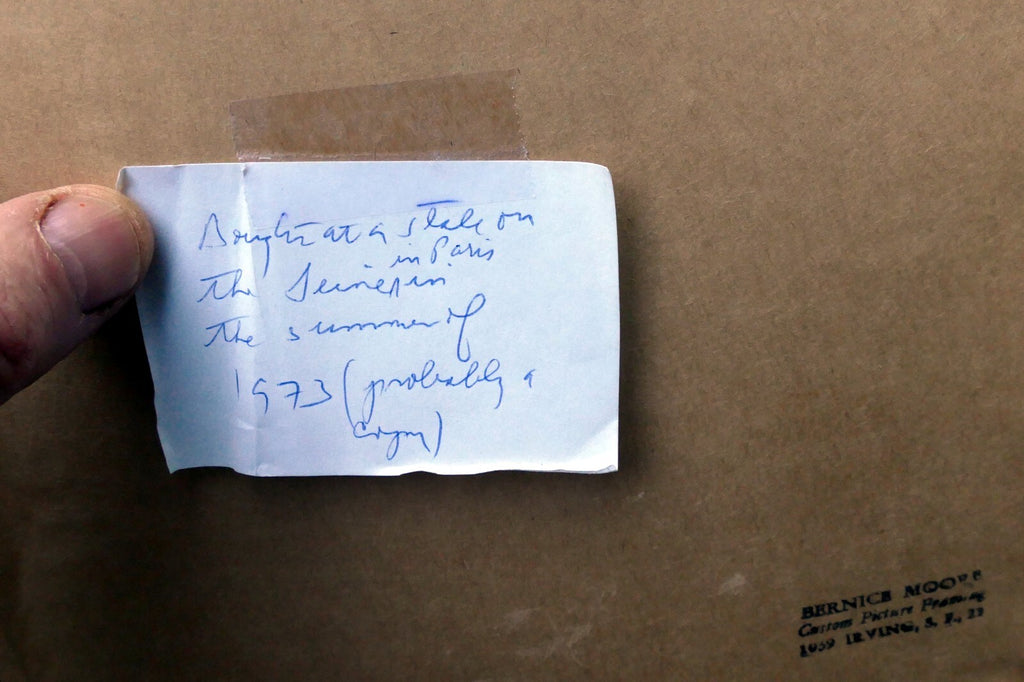 Bought at a stale on
in Paris
the Seine, in
the summer of
1973 (probably a
copy)
BERNICE MOORE
Custom Picture Framing
1059 IRVING, S. F. 22